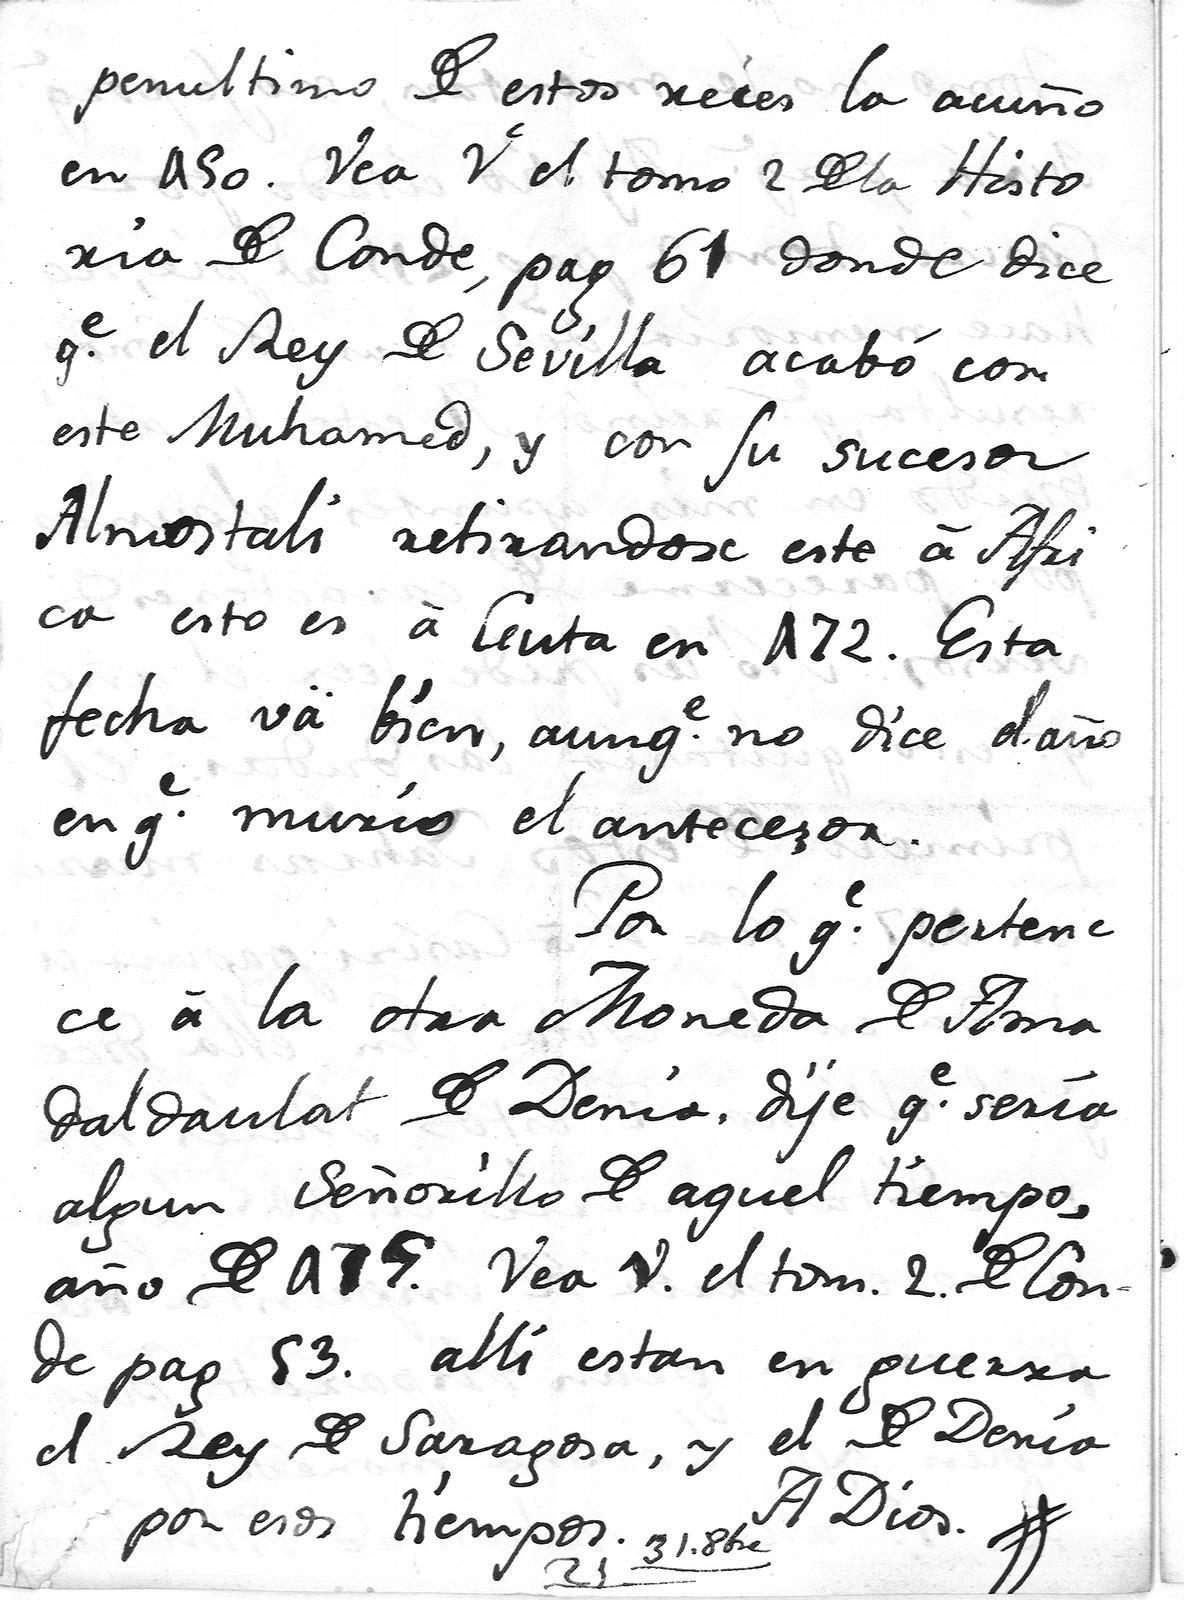 penultimo de estos reies la acuño
en 450. Vea Vᵉ el tomo 2 dela Histo
ria de Conde, pag 61 donde dice
qᵉ. el Rey de Sevilla acabó con
este Muhamed, y con su sucesor
Almostali retirandose este â Afri
ca esto es â Ceuta en 472. Esta
fecha vä bien, aunqᵉ. no dice el año
en qᵉ. murio el antecesor.
Por lo qᵉ. pertene
ce â la otra Moneda de Ama
daldaulat de Denia, dije qᵉ. sería
algun Señorillo de aquel tiempo,
año de 475. Vea V. el tom. 2. de Con-
de pag 53. alli estan en guerra
el Rey de Saragosa, y el de Denia
por esos tiempos. A Dios.
31.8bre
21